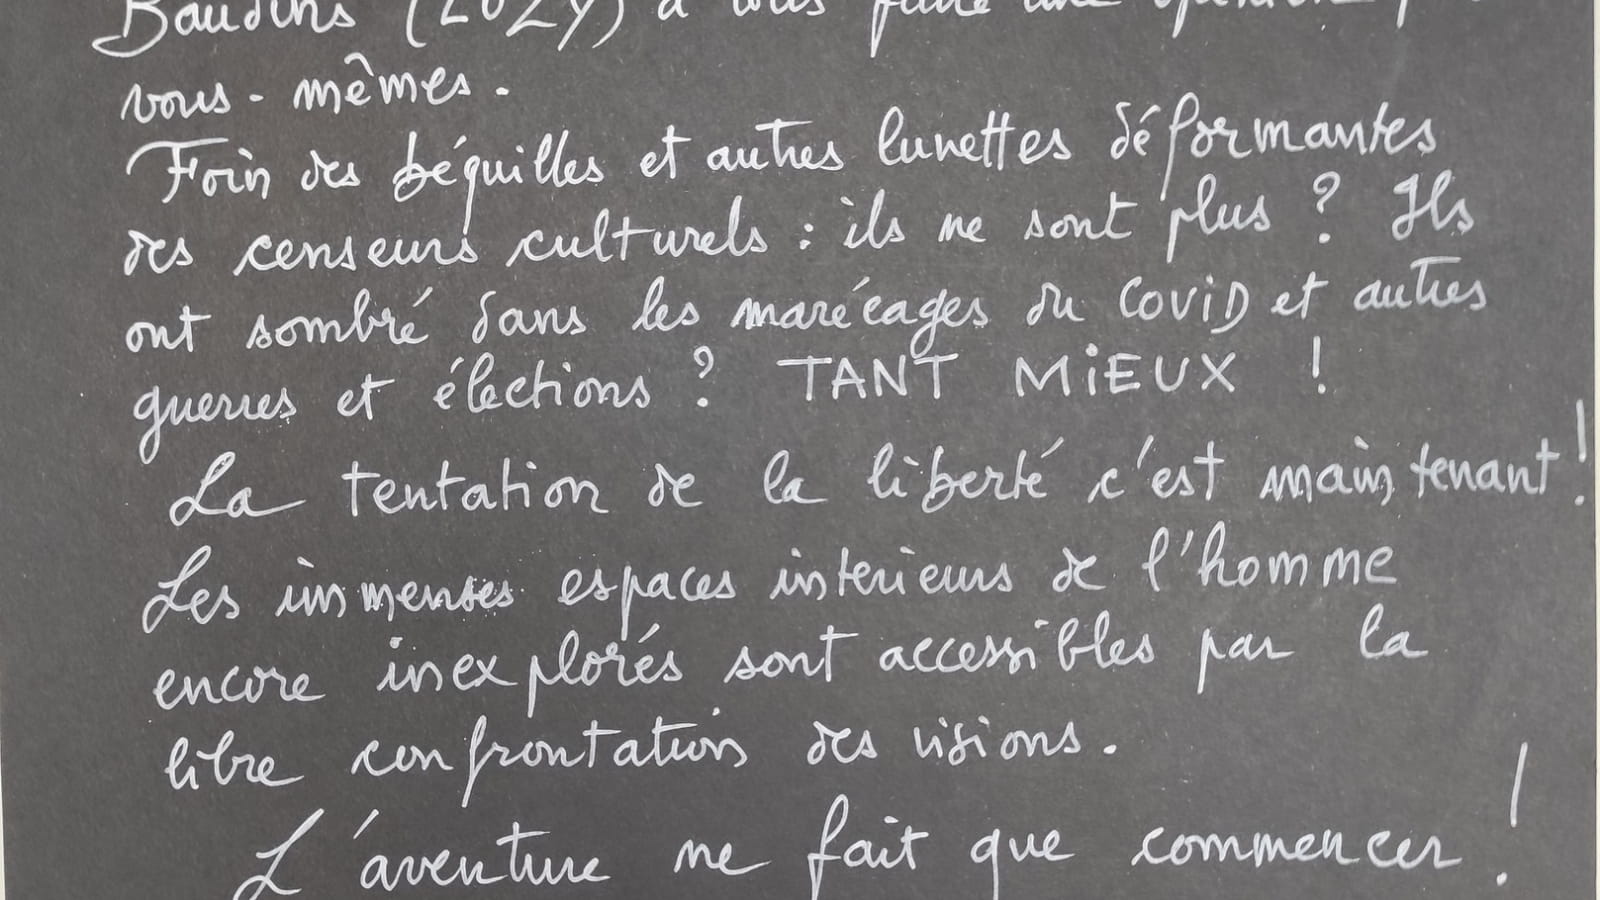 Baudins (2024) à vous faire une opinion
vous-mêmes.
Foin des béquilles et autres lunettes déformantes
des censeurs culturels : ils ne sont plus ? Ils
ont sombré dans les marécages du COVID et autres
guerres et élections ? TANT MiEUX !
La tentation de la liberté c'est maintenant !
Les immenses espaces interieurs de l'homme
encore inexplorés sont accessibles par la
libre confrontation des visions.
L'aventure ne fait que commencer !